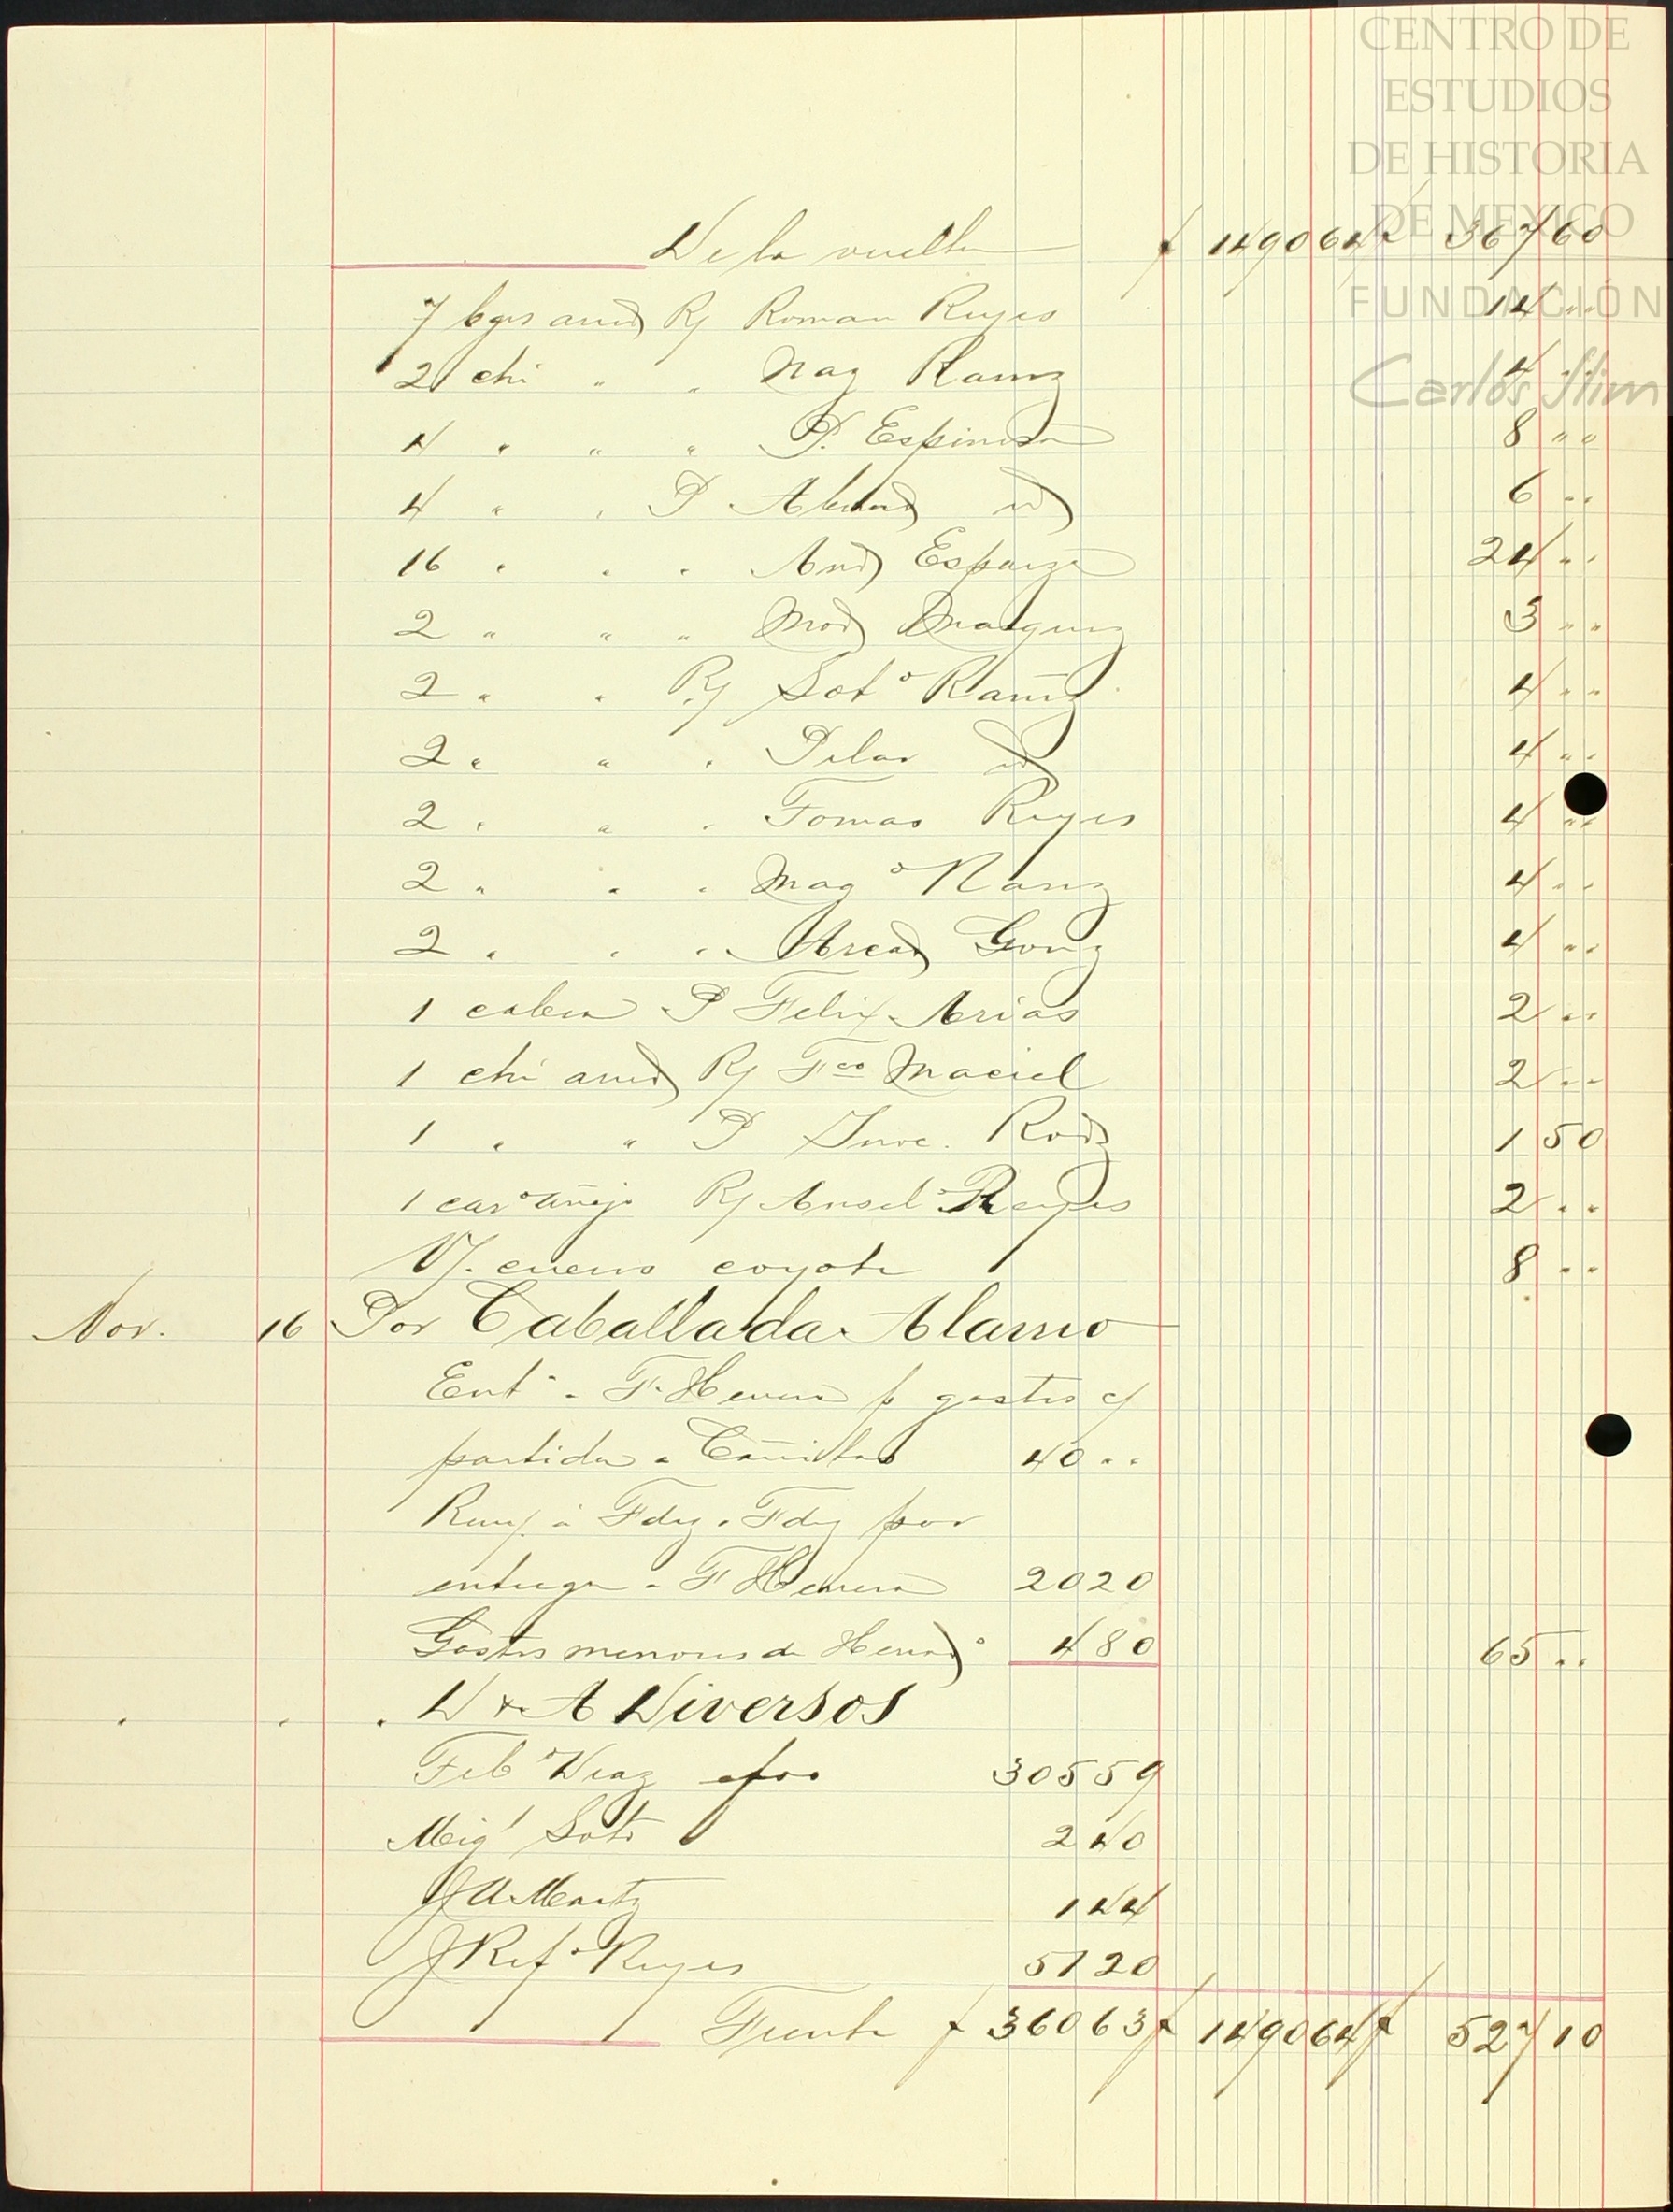 CENTRO DE
ESTUDIOS
DE HISTORIA
DE MEXICO
FUNDACIÓN
Carlos Slim
De la vuelta $ 149064 $ 36760
7 bgs amd Rj Roman Reyes 14 " "
2 chi " " Mag Ramz 4 " "
4 " " " P. Espinosa 8 " "
4 " " P id 6 " "
16 " " " And Esparza 24 " "
2 " " " Mod Marquez 3 " "
2 " " Rj Sotº Ramz 4 " "
2 " " " Pilar id 4 " "
2 " " " Tomas Reyes 4 " "
2 " " " Magº Ramz 4 " "
2 " " " Arcad Gonz 4 " "
1 P Felix Arias 2 " "
1 chi amd Rj Fco Maciel 2 " "
1 " " P Inoc. Rodz 1 50
1 carº añejo Rj Anselº Reyes 2 " "
V/. cueros coyote 8 " "
Nov. 16 Por Caballada Alamo
Entº a F. Herrera p gastos c/
partida a Cañitas 40 " "
á Fdez. Fdez por
entrega a F Herrera 2020
Gastos menores de 480 65 " "
" " " D & A Diversos
Febº Diaz 30559
Migl Soto 240
J A Martz 144
J Refº Reyes 5120
Frente $ 36063 $ 149064 $ 52710